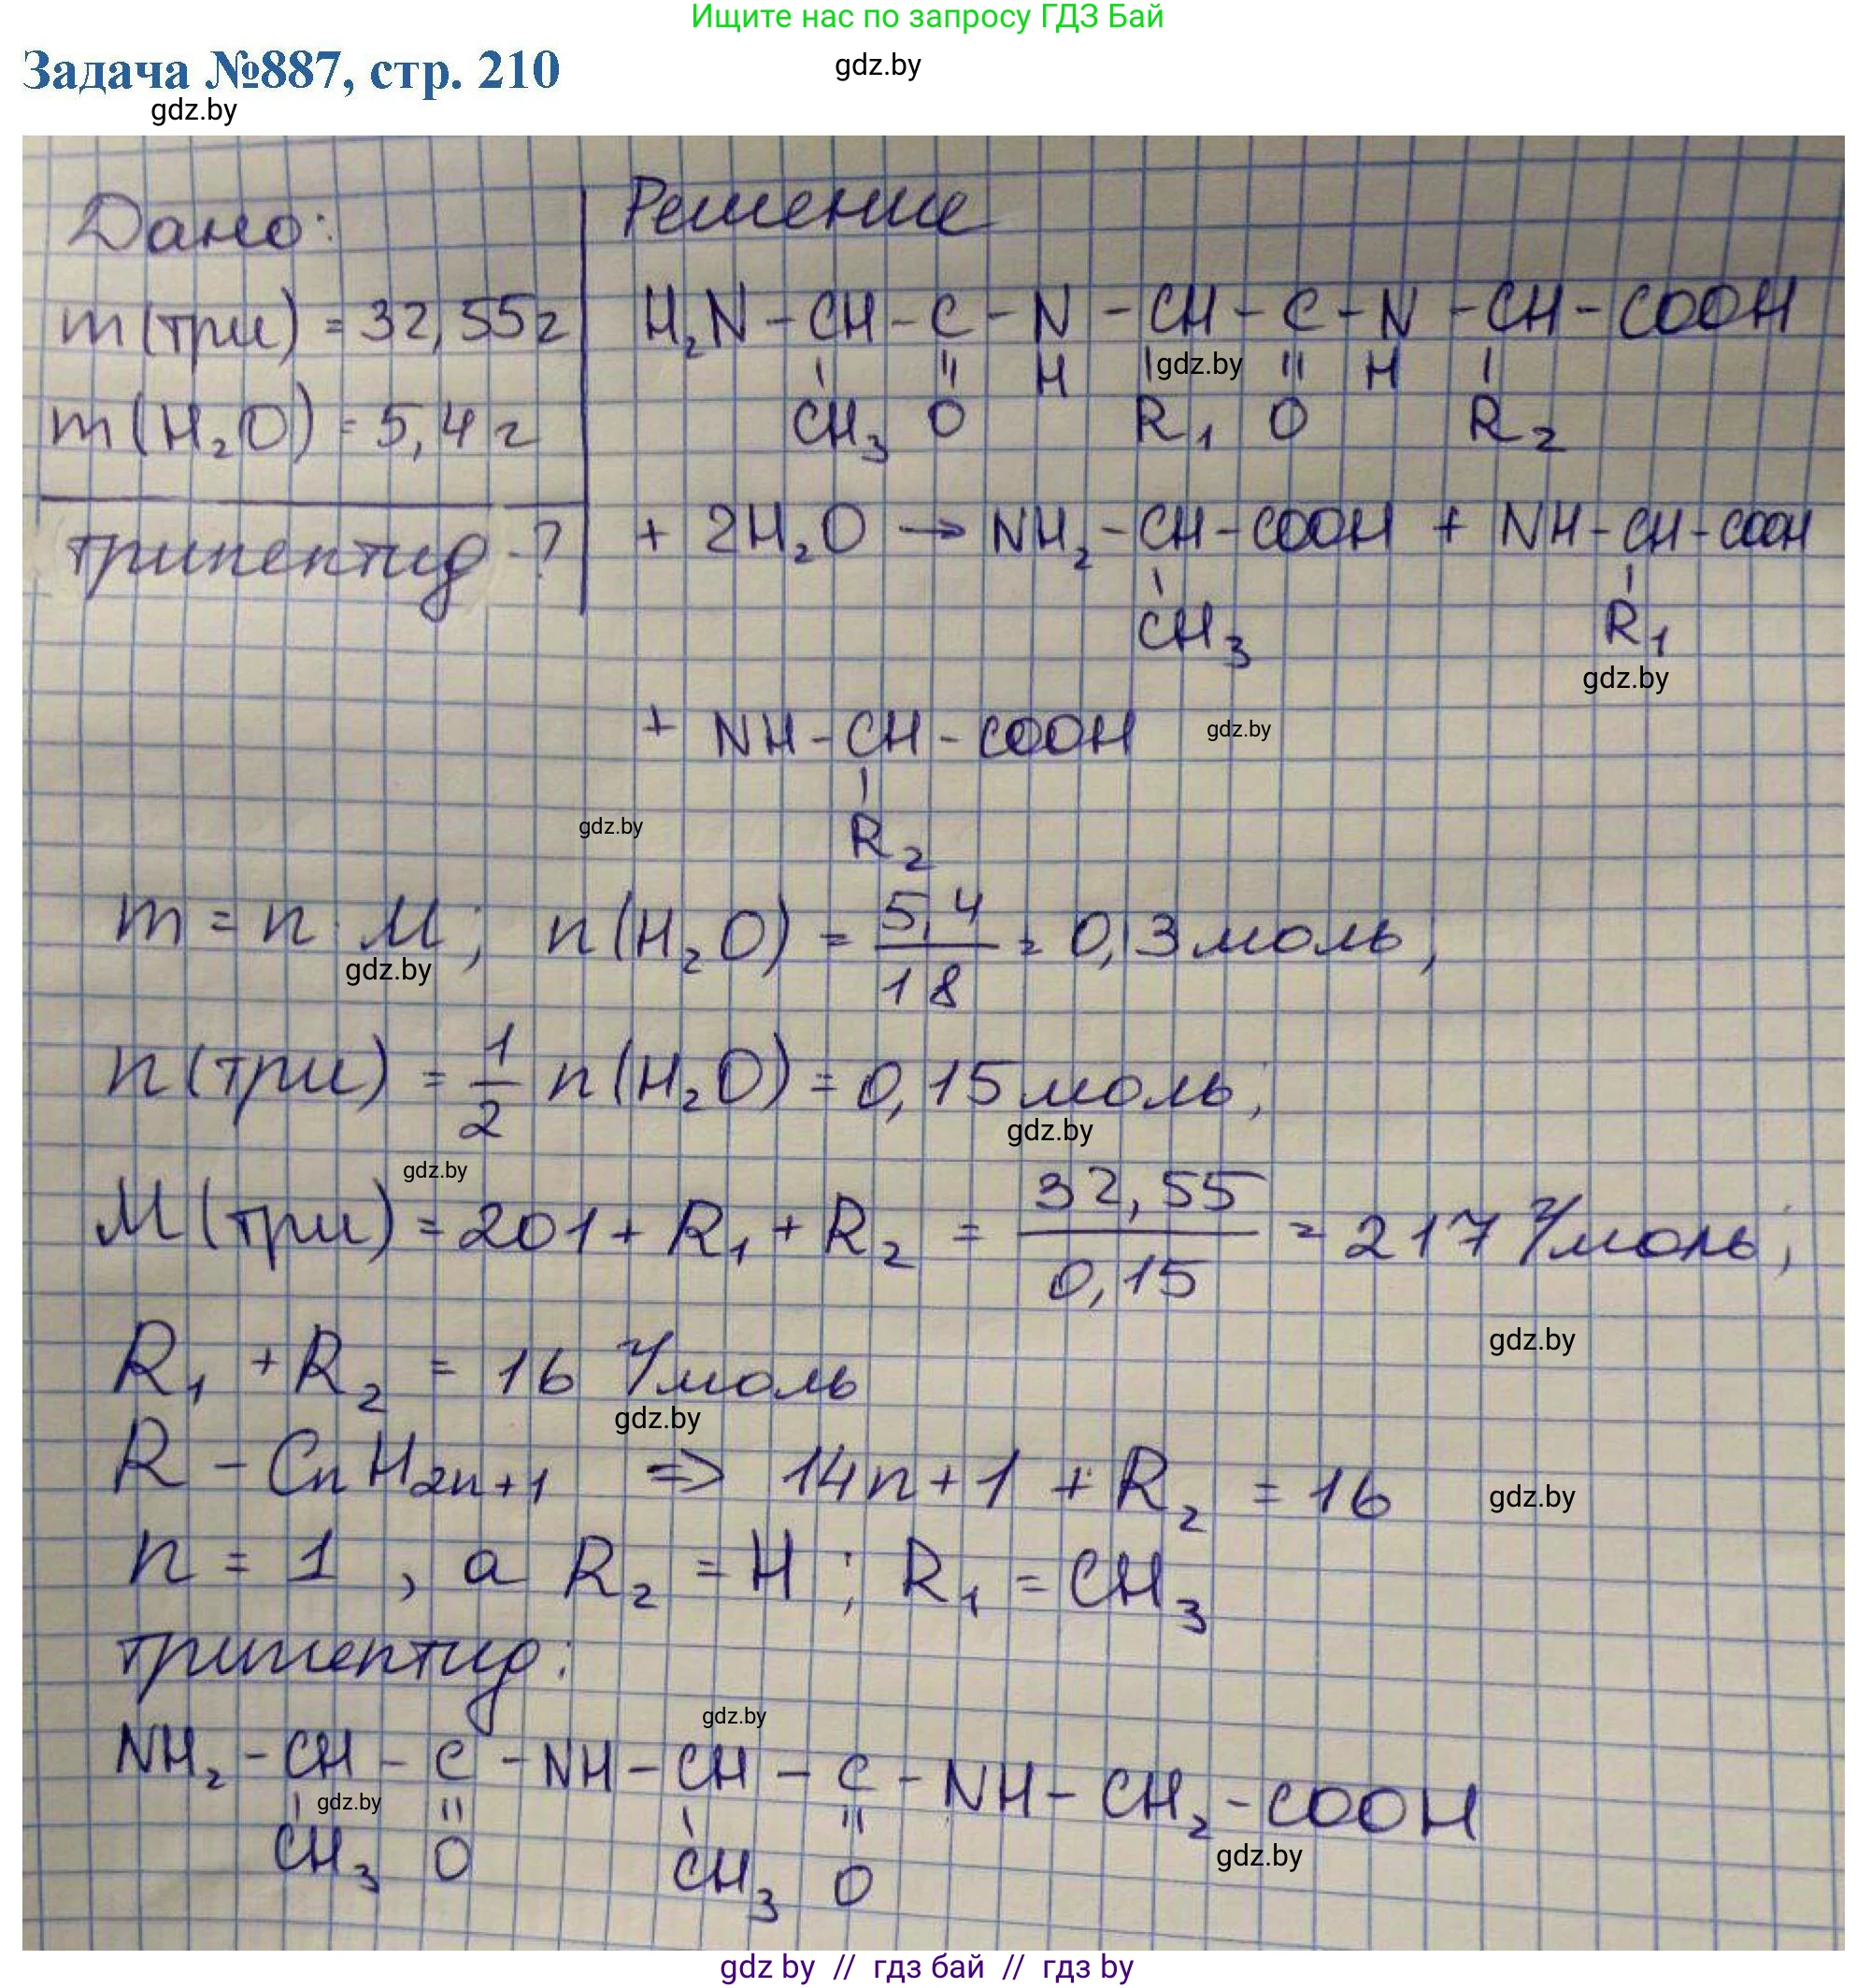 Ищите нас по запросу ГДЗ Бай
Задача №887, стр. 210
gdz.by
gdz.by
Дано:
m(три) = 32,55г
m(H₂O) = 5,4 г
трипептид - ?
Решение
H₂N - CH - C - N - CH - C - N - CH - COOH
CH₃ O H R₁ O H R₂
gdz.by
+ 2H₂O → NH₂ - CH - COOH + NH - CH - COOH
CH₃ R₁
gdz.by
+ NH - CH - COOH
gdz.by
R₂
gdz.by
m = n · M; n(H₂O) = 5,4/18 = 0,3 моль;
gdz.by
n(три) = 1/2 n(H₂O) = 0,15 моль;
gdz.by
gdz.by
M(три) = 201 + R₁ + R₂ = 32,55/0,15 = 217 г/моль;
gdz.by
R₁ + R₂ = 16 г/моль
gdz.by
R - CnH2n+1 => 14n+1 + R₂ = 16
gdz.by
n = 1, а R₂ = H; R₁ = CH₃
трипептид:
gdz.by
NH₂ - CH - C - NH - CH - C - NH - CH₂ - COOH
gdz.by
CH₃ O CH₃ O
gdz.by
gdz by // гдз бай // гдз by